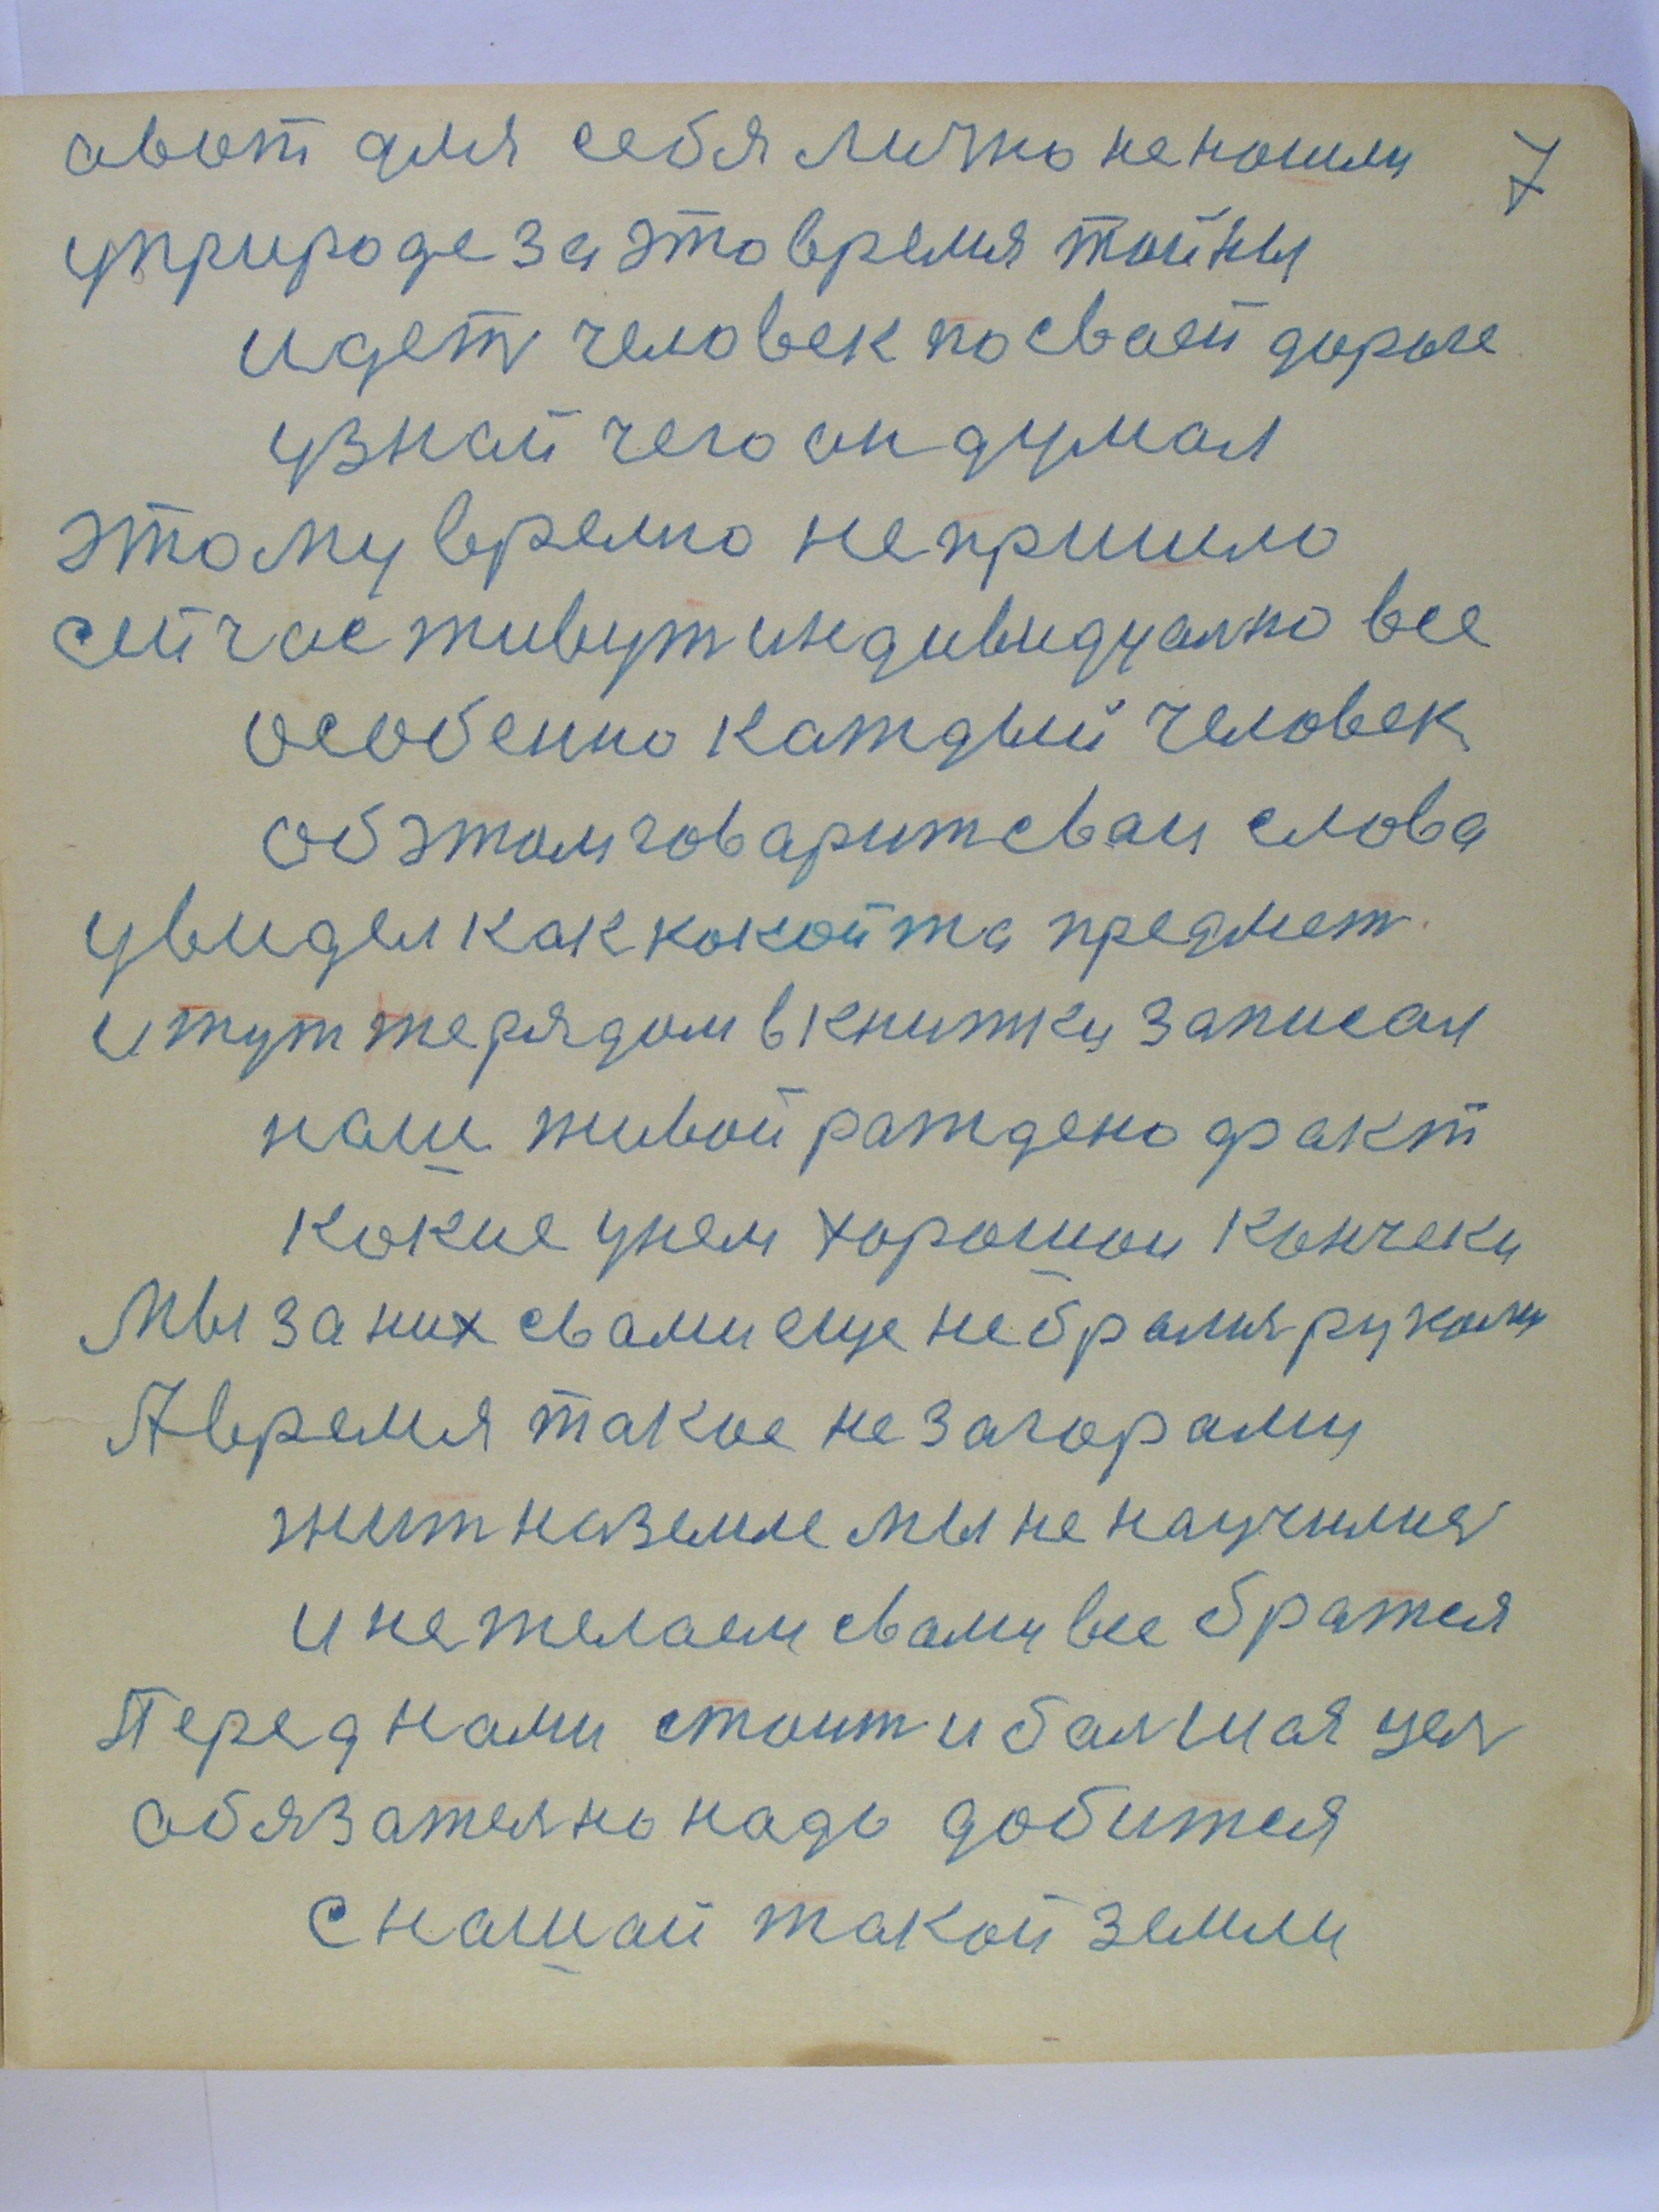 авот для себя лично ненашли 7
уприроде за этовремя тайны
идет человек по сваей дороге
узнай чего он думал
этому времю непришло
сичас живут индивидуално все
особенно каждый человек
обэтом говарит сваи слова
увидел как кокойта предмет
и тутже рядом в книжку записал
наш живой раждено факт
кокие унем хорошои кончеки
Мы за них свами еще небралис руками
А время такое не загорами
жит наземле мы не научилис
и не желаем свами все братся
Перед нами стоит и балшая цел
обязателно надо добится
с нашай такой земли